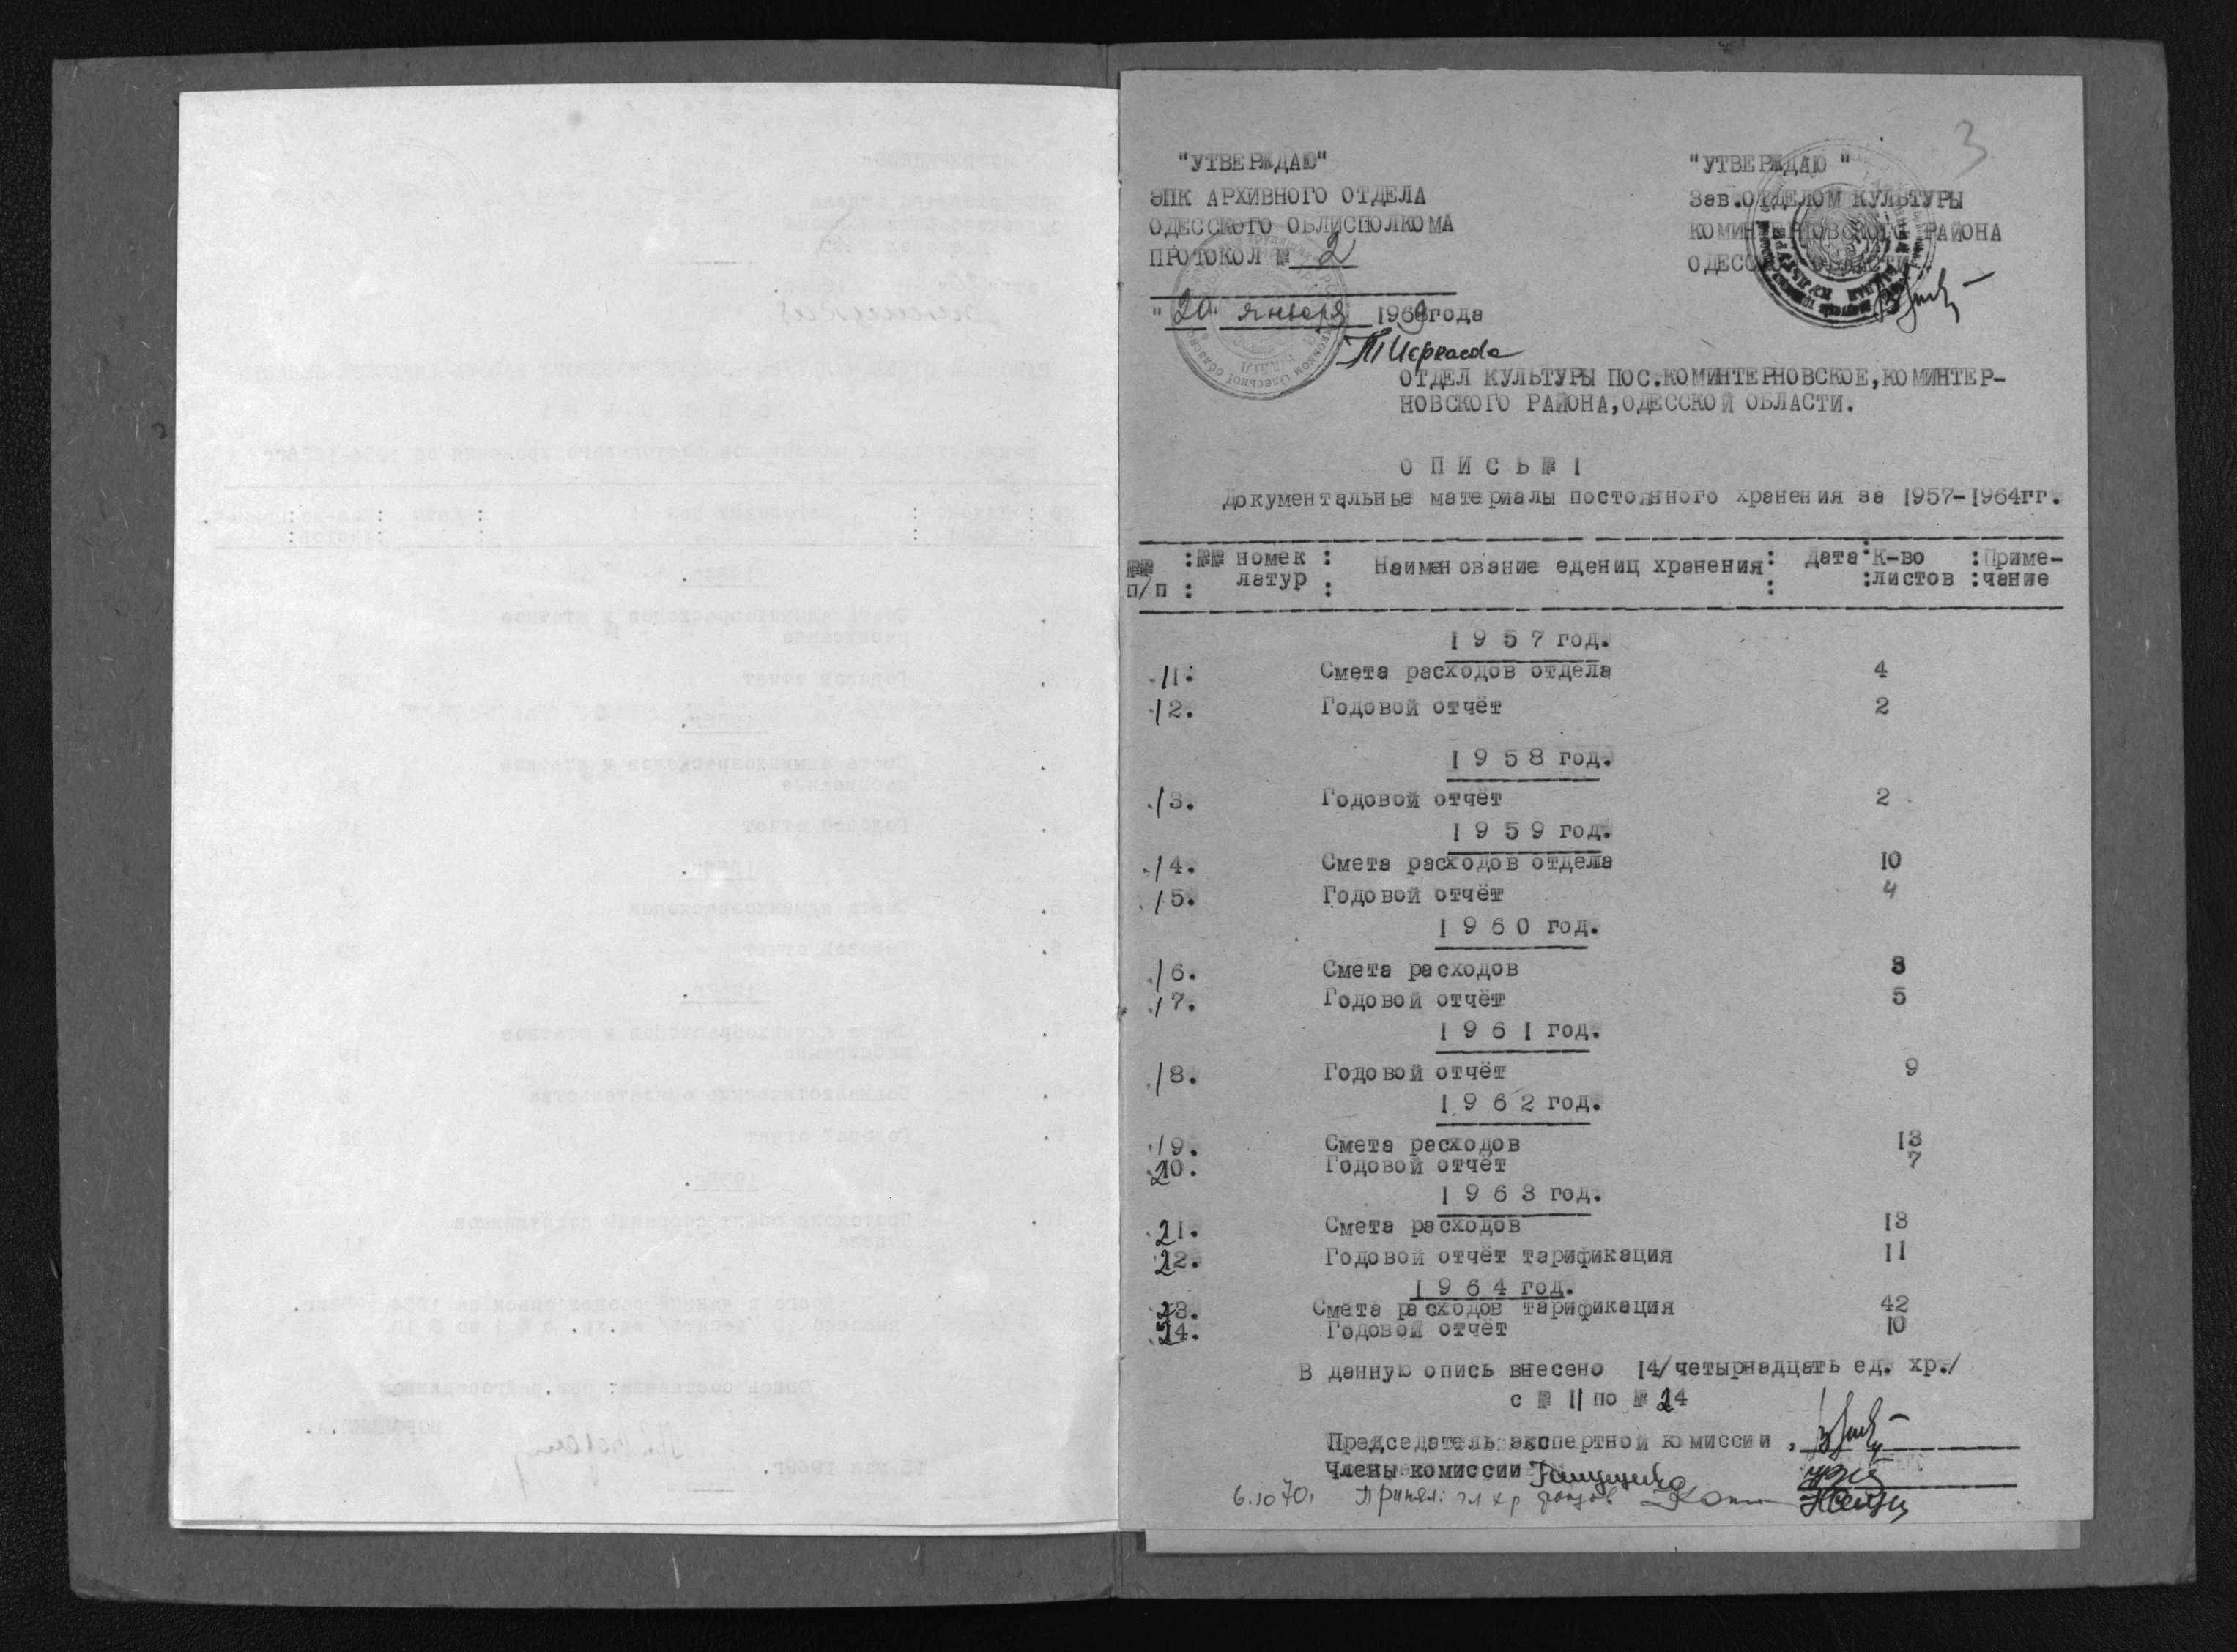 3
"УТВЕРЖДАЮ"
ЭПК АРХИВНОГО ОТДЕЛА
ОДЕССКОГО ОБЛИСПОЛКОМА
ПРОТОКОЛ № 2
"20" января 1969 года
"УТВЕРЖДАЮ"
Зав.ОТДЕЛОМ КУЛЬТУРЫ
КОМИНТЕРНОВСКОГО РАЙОНА
ОДЕССКОЙ ОБЛАСТИ
ОТДЕЛ КУЛЬТУРЫ ПОС.КОМИНТЕРНОВСКОЕ,КОМИНТЕР-
НОВСКОГО РАЙОНА,ОДЕССКОЙ ОБЛАСТИ.
О П И С Ь № 1
Документальные материалы постоянного хранения за 1957-1964гг.
№№ :№№ номек : Наименование едениц хранения: Дата:К-во :Приме-
п/п : латур : : :листов :чание
1 9 5 7 год.
11. Смета расходов отдела 4
12. Годовой отчёт 2
1 9 5 8 год.
13. Годовой отчёт 2
1 9 5 9 год.
14. Смета расходов отдела 10
15. Годовой отчёт 4
1 9 6 0 год.
16. Смета расходов 3
17. Годовой отчёт 5
1 9 6 1 год.
18. Годовой отчёт 9
1 9 6 2 год.
19. Смета расходов 13
20. Годовой отчёт 7
1 9 6 3 год.
21. Смета расходов 13
22. Годовой отчёт тарификация 11
1 9 6 4 год.
23. Смета расходов тарификация 42
24. Годовой отчёт 10
В данную опись внесено 14/четырнадцать ед. хр./
с № 11 по № 24
Председатель экспертной комиссии
Члены комиссии
6.10 70. Принял: гл хр фондов